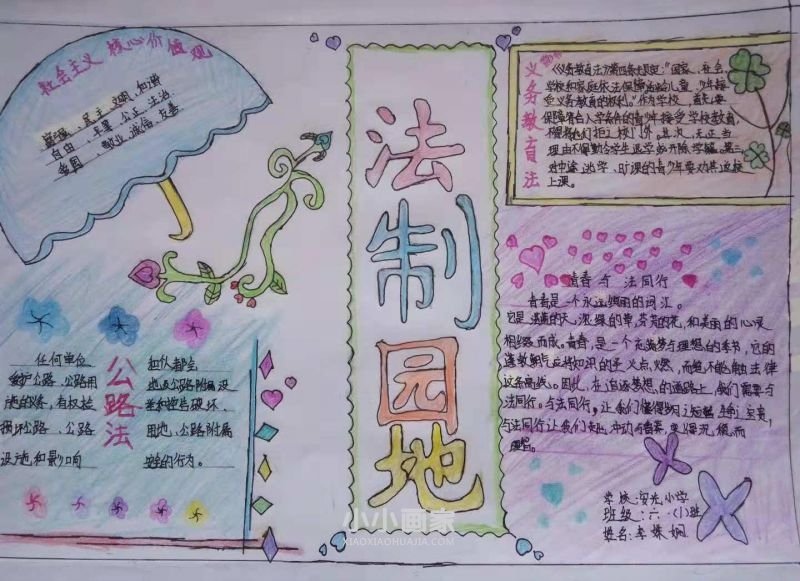 社会主义 核心价值观
富强、民主、文明、和谐
自由、平等、公正、法治
爱国、敬业、诚信、友善
法制园地
义务教育法
《义务教育法》第四条规定："国家、社会、
学校和家庭依法保障适龄儿童、少年接
受义务教育的权利。"作为学校，首先要
保障符合入学条件的青少年接受学校教育
不得将他们拒之校门外。其次，无正当
理由不得勒令学生退学或开除学籍。第三
对中途退学、旷课的青少年要劝其返校
上课。
公路法
任何单位
爱护公路、公路用
法的义务，有权检
损坏公路、公路
设施和影响
和个人都会
地及公路附属设
举和控告破坏、
用地、公路附属
安全的行为。
青春与法同行
青春是一个永远绚丽的词汇。
它是湛蓝的天，深绿的草，芬芳的花，和美丽的心灵
相缀而成。青春，是一个充满梦与理想的季节，它的
蓬勃朝气应将知识的圣火点燃，而绝不能触击法律
这条高线。因此，在追逐梦想的道路上，我们需要与
法同行。与法同行，让我们懂得
与法同行让我们
学校：安光小学
班级：六·(1)班
姓名：李姝娴
小小画家
XIAOXIAOHUAJIA.COM